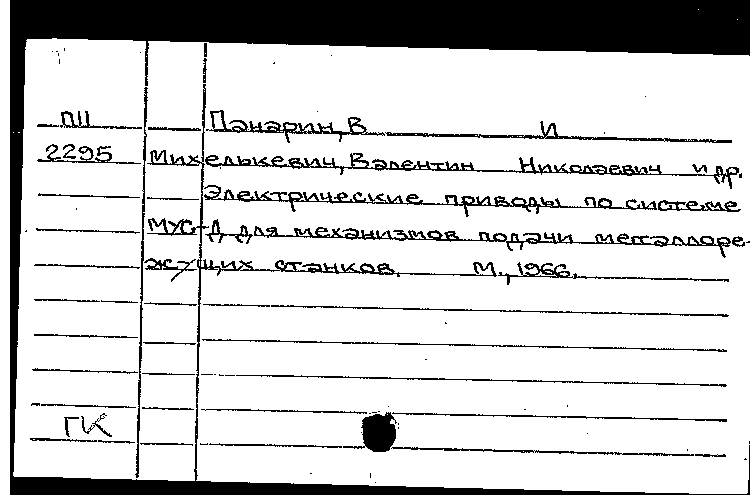 П11 Панарин, В И
2295 Михелькевич, Валентин Николаевич и др.
Электрические приводы по системе
МУС-Д для механизмов подачи металлоре-
жущих станков. М., 1966.
ГК